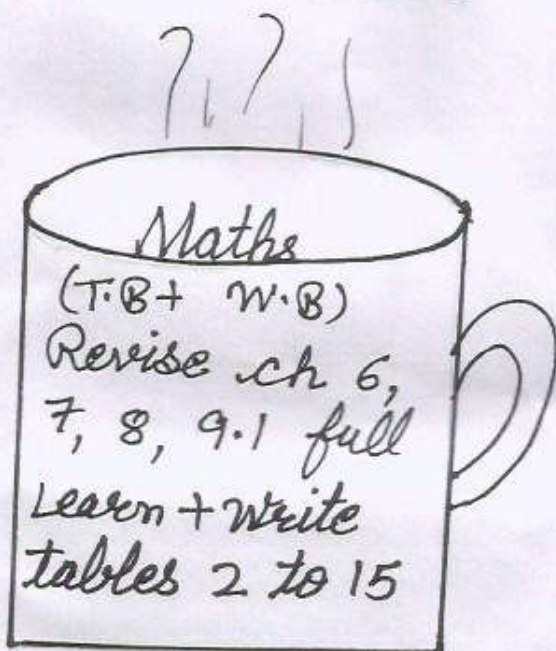 Maths
(T.B+ W.B)
Revise ch 6,
7, 8, 9.1 full
Learn + Write
tables 2 to 15